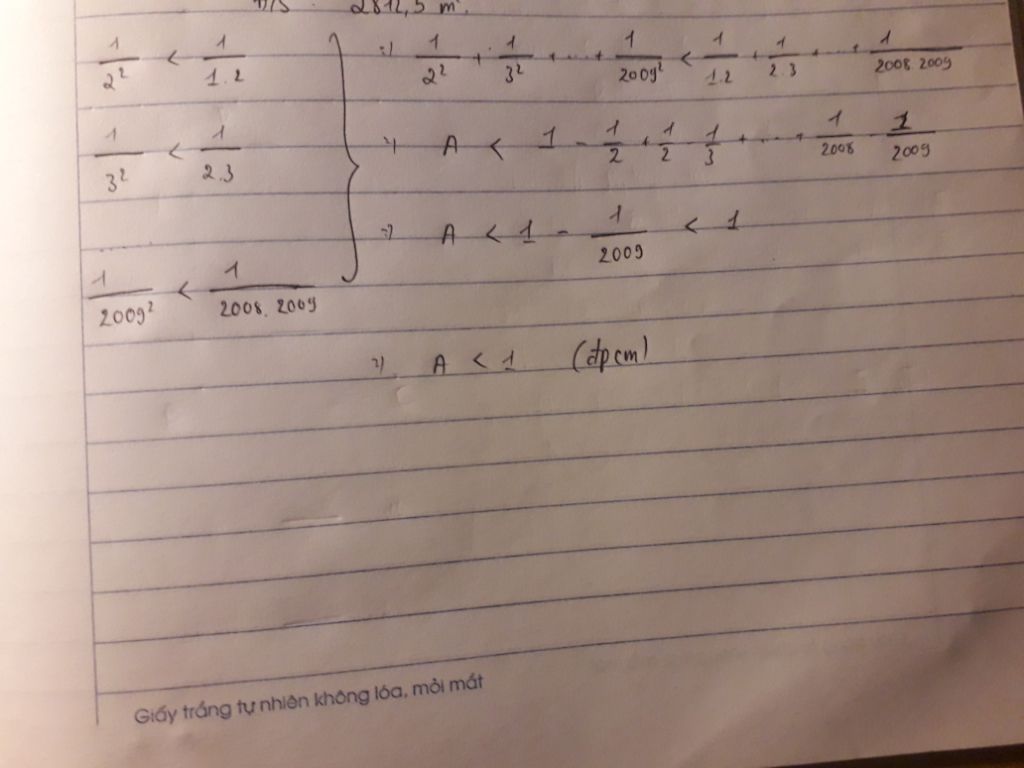 Đ/S : 2812,5 m².
1/2² < 1/1.2
1/3² < 1/2.3
1/2009² < 1/2008.2009
=) 1/2² + 1/3² + ... + 1/2009² < 1/1.2 + 1/2.3 + ... + 1/2008.2009
=) A < 1 - 1/2 + 1/2 - 1/3 + ... + 1/2008 - 1/2009
=) A < 1 - 1/2009 < 1
=) A < 1 (đpcm)
Giấy trắng tự nhiên không lóa, mỏi mắt